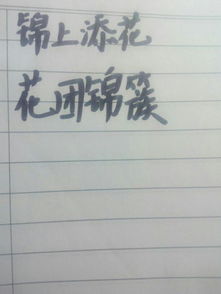 锦上添花
花团锦簇